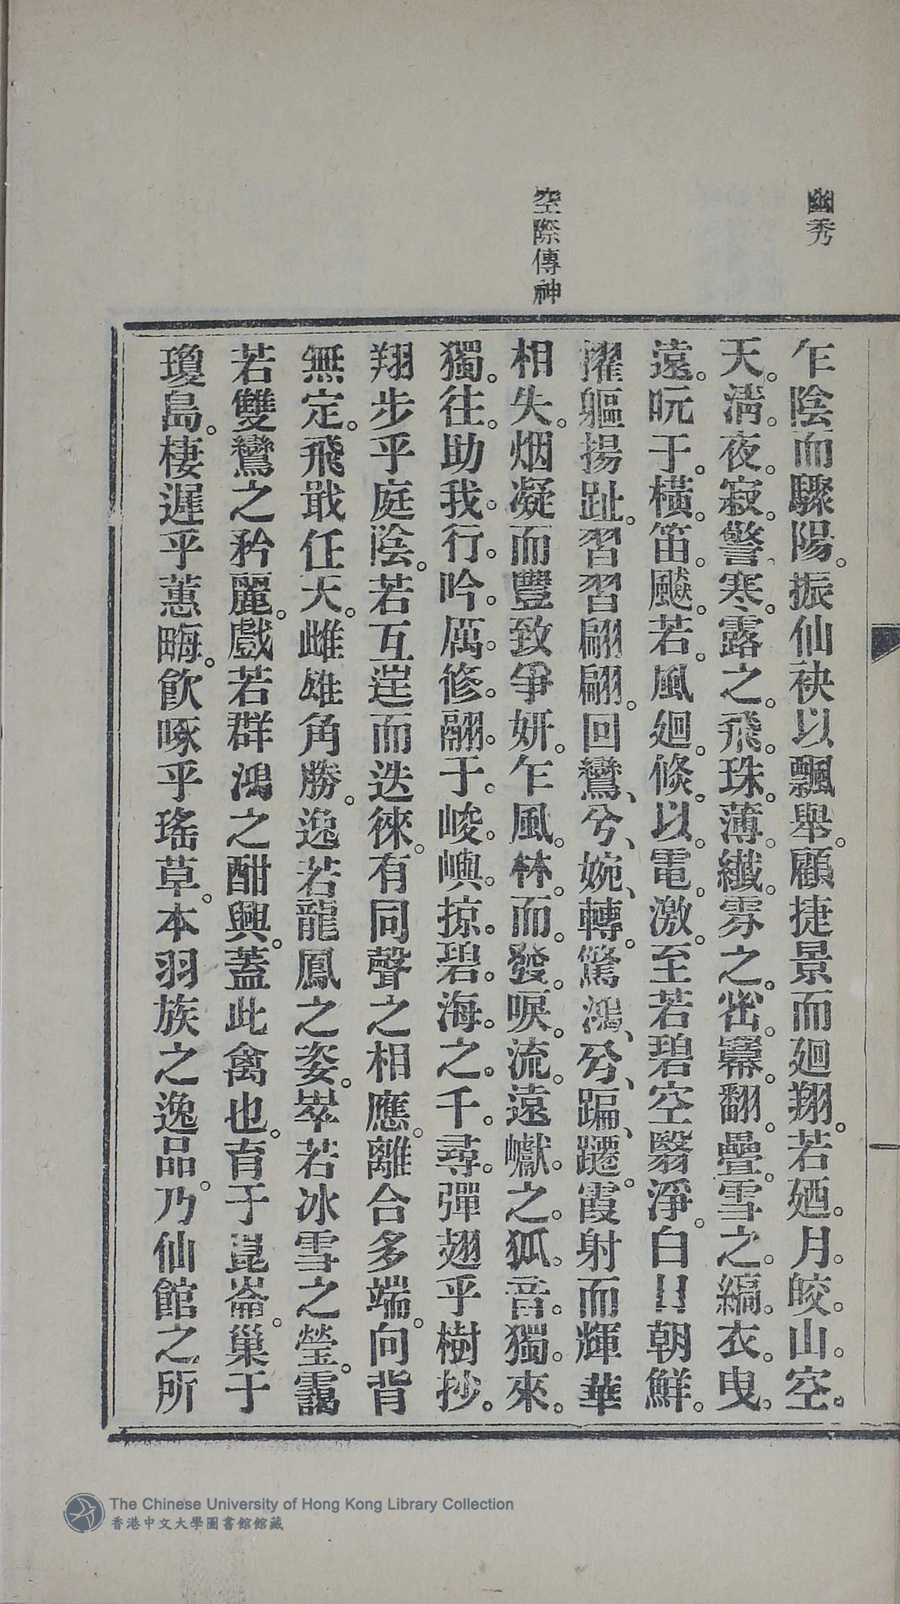 幽秀
空際傳神
乍陰而驟陽。振仙袂以飄舉。顧捷景而廻翔。若廼。月。皎。山。空。
天。清。夜。寂。警。寒。露之。飛。珠。薄。纖。雰之。密。羃。翻。疊。雪之。縞。衣。曳。
遠。吭于。橫。笛。颷。若。風廻。倏。以。電激。至若碧空翳淨。白日朝鮮。
擢軀揚趾。習習翩翩。回鸞、兮、婉、轉。驚鴻、兮、蹁、躚。霞射而輝華
相失。烟凝而豐致爭妍。乍風。林。而。發。唳。流。遠。巘。之。狐。音。獨。來。
獨。往。助。我。行。吟。厲。修。翮。于。峻。嶼。掠。碧。海。之。千。尋。彈翅乎樹抄。
翔步乎庭陰。若互逞而迭徠。有同聲之相應。離合多端。向背
無定。飛戢任天。雌雄角勝。逸若龍鳳之姿。崒若冰雪之瑩。靄
若雙鸞之矜麗。戲若群鴻之酣興。蓋此禽也。育于崑崙。巢于
瓊島。棲遲乎蕙畮。飲啄乎瑤草。本羽族之逸品。乃仙館之所
The Chinese University of Hong Kong Library Collection
香港中文大學圖書館館藏